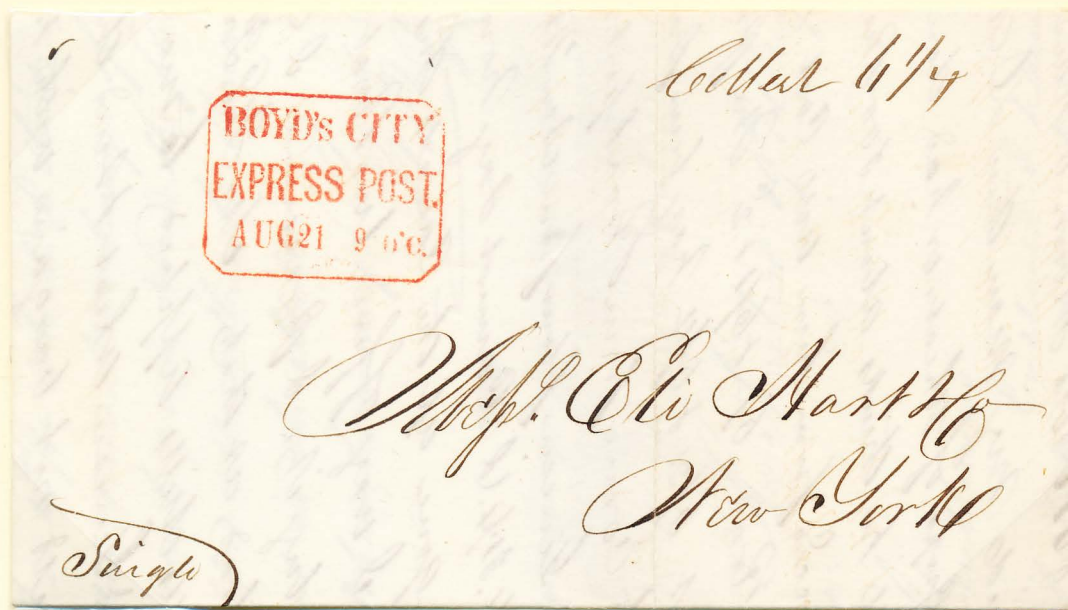 Collect 6 1/4
BOYD's CITY
EXPRESS POST.
AUG 21 9 o'c.
Messrs. Eli Hart & Co
New York
Single